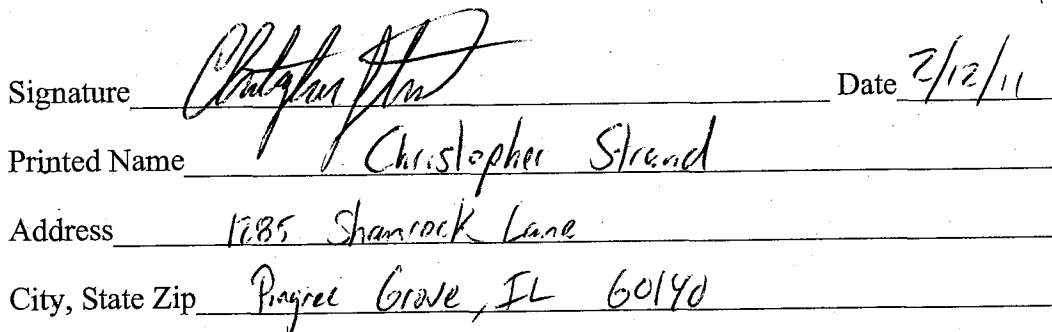 Signature Christopher Strand Date 2/12/11
Printed Name Christopher Strand
Address 1285 Shamrock Lane
City, State Zip Pingree Grove, IL 60140